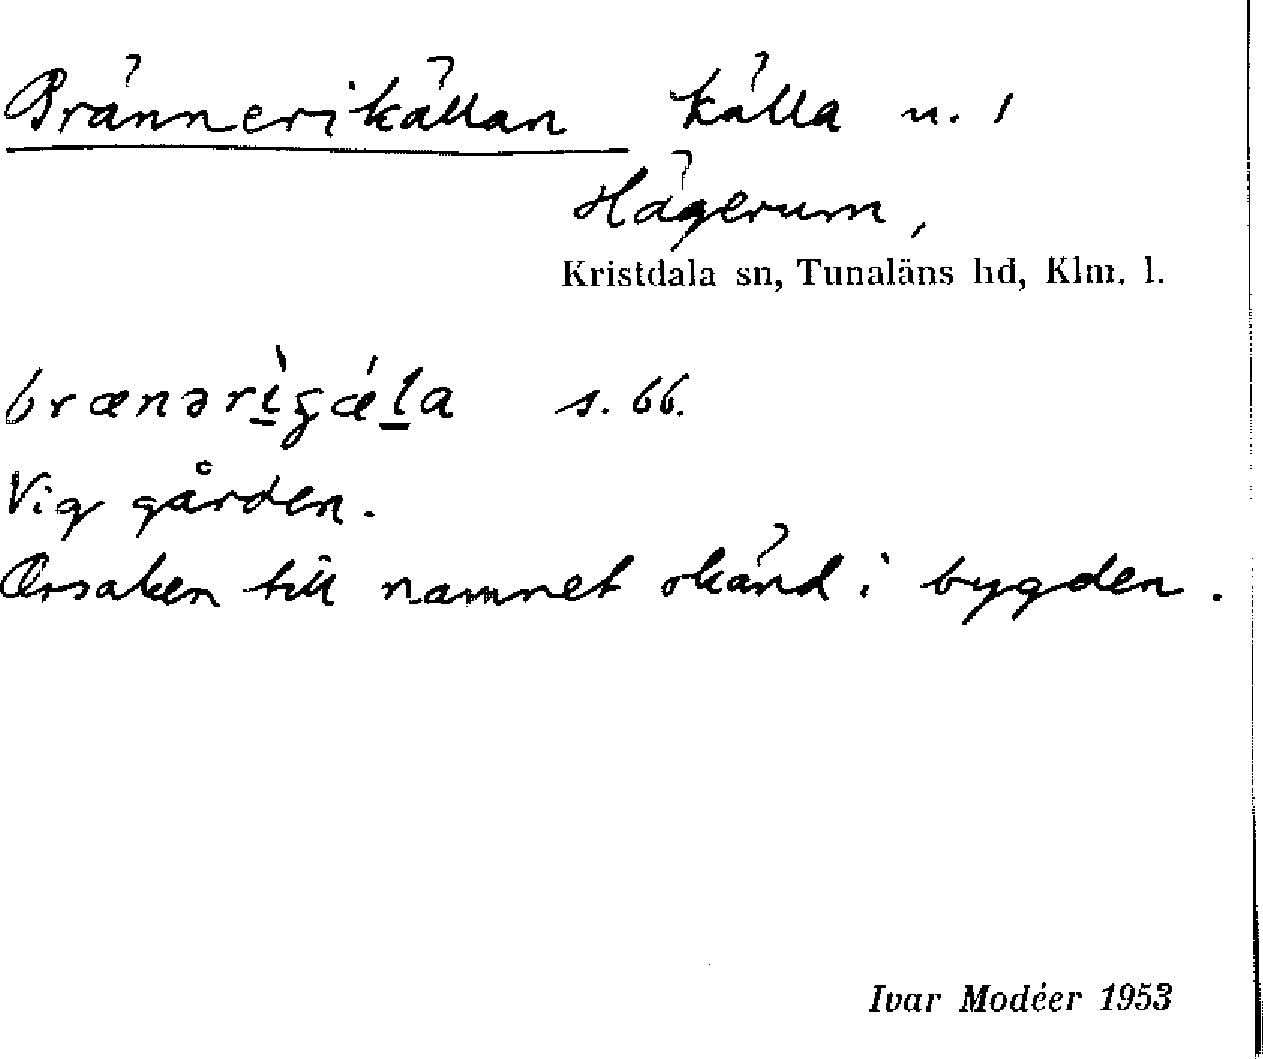 Brännerikällan källa n. 1
Hägerum,
Kristdala sn, Tunaläns hd, Klm. l.
brænərìgǽla s. 66.
Vig gården.
Orsaken till namnet okänd i bygden.
Ivar Modéer 1953